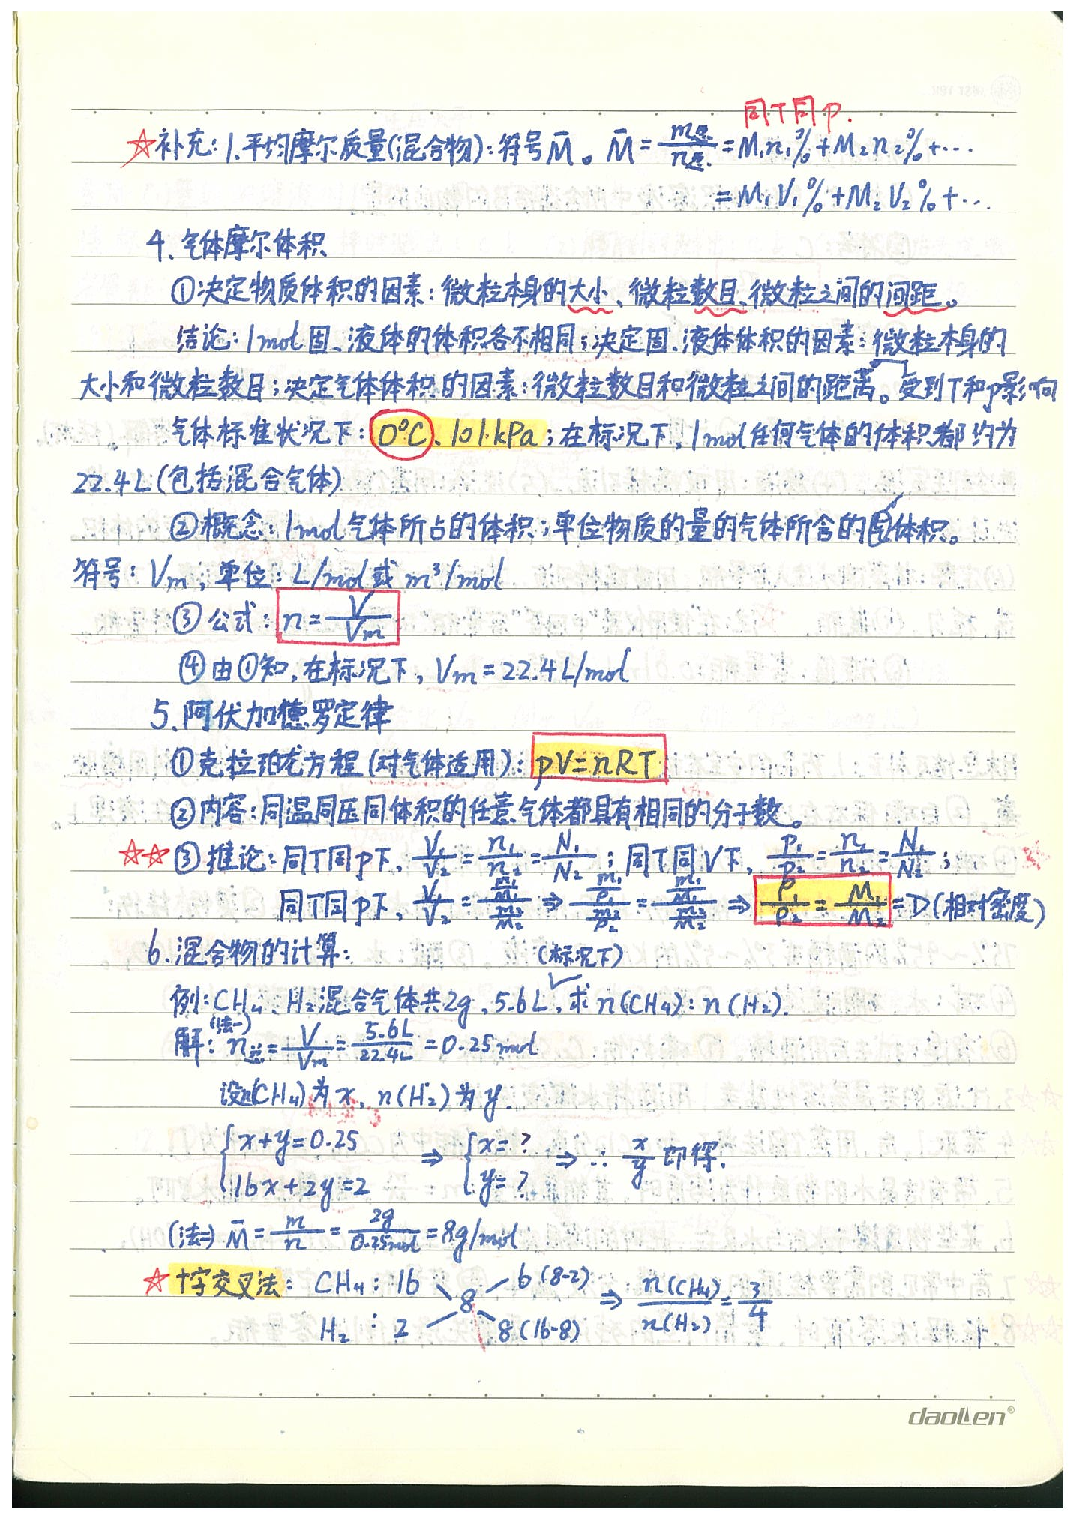 同T同p.
☆补充:1.平均摩尔质量(混合物):符号M̄。M̄=m总/n总=M₁n₁%+M₂n₂%+…
=M₁V₁%+M₂V₂%+…
4.气体摩尔体积
①决定物质体积的因素:微粒本身的大小、微粒数目、微粒之间的间距。
结论:1mol固、液体的体积各不相同;决定固、液体体积的因素:微粒本身的
大小和微粒数目;决定气体体积的因素:微粒数目和微粒之间的距离。受到T和p影响
气体标准状况下:0℃、101kPa;在标况下,1mol任何气体的体积都约为
22.4L(包括混合气体)
②概念:1mol气体所占的体积;单位物质的量的气体所含的体积。
符号:Vm,单位:L/mol或m³/mol
③公式:n=V/Vm
④由①知,在标况下,Vm=22.4L/mol
5.阿伏加德罗定律
①克拉珀龙方程(对气体适用):pV=nRT
②内容:同温同压同体积的任意气体都具有相同的分子数。
☆☆③推论:同T同p下,V₁/V₂=n₁/n₂=N₁/N₂;同T同V下,p₁/p₂=n₁/n₂=N₁/N₂;
同T同p下,V₁/V₂=(m₁/M₁)/(m₂/M₂)⇒(m₁/ρ₁)/(m₂/ρ₂)=(m₁/M₁)/(m₂/M₂)⇒ρ₁/ρ₂=M₁/M₂=D(相对密度)
6.混合物的计算:
(标况下)
例:CH₄、H₂混合气体共2g,5.6L,求n(CH₄):n(H₂).
解:(法一)n总=V/Vm=5.6L/22.4L=0.25mol
设n(CH₄)为x,n(H₂)为y.
{x+y=0.25 ⇒ {x=? ⇒∴x/y即得.
{16x+2y=2 {y=?
(法二)M̄=m/n=2g/0.25mol=8g/mol
☆十字交叉法:CH₄:16 6(8-2)
8 ⇒n(CH₄)/n(H₂)=3/4
H₂:2 8(16-8)
daolen®